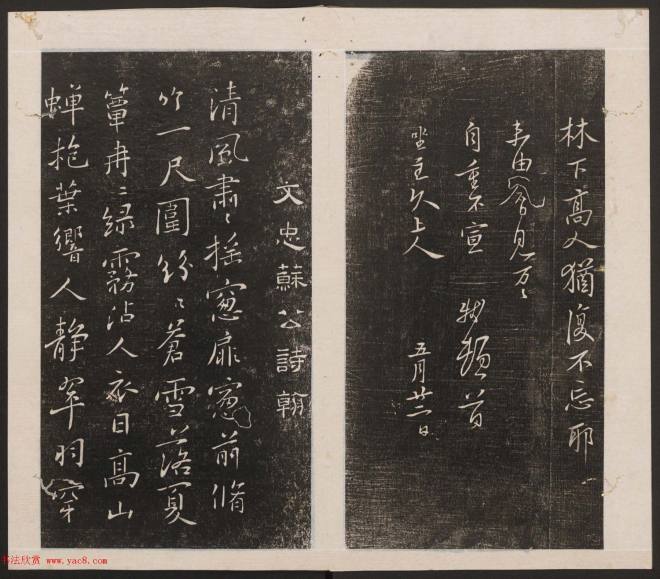 林下高人猶復不忘耶
未由会見万万
自重不宣 軾頓首
坐主久上人 五月廿二日
文忠蘇公詩翰
清風肅肅搖窓扉窓前脩
竹一尺圍紛紛蒼雪落夏
簟冉冉緑霧沾人衣日高山
蟬抱葉響人静翠羽穿
书法欣赏 www.yac8.com